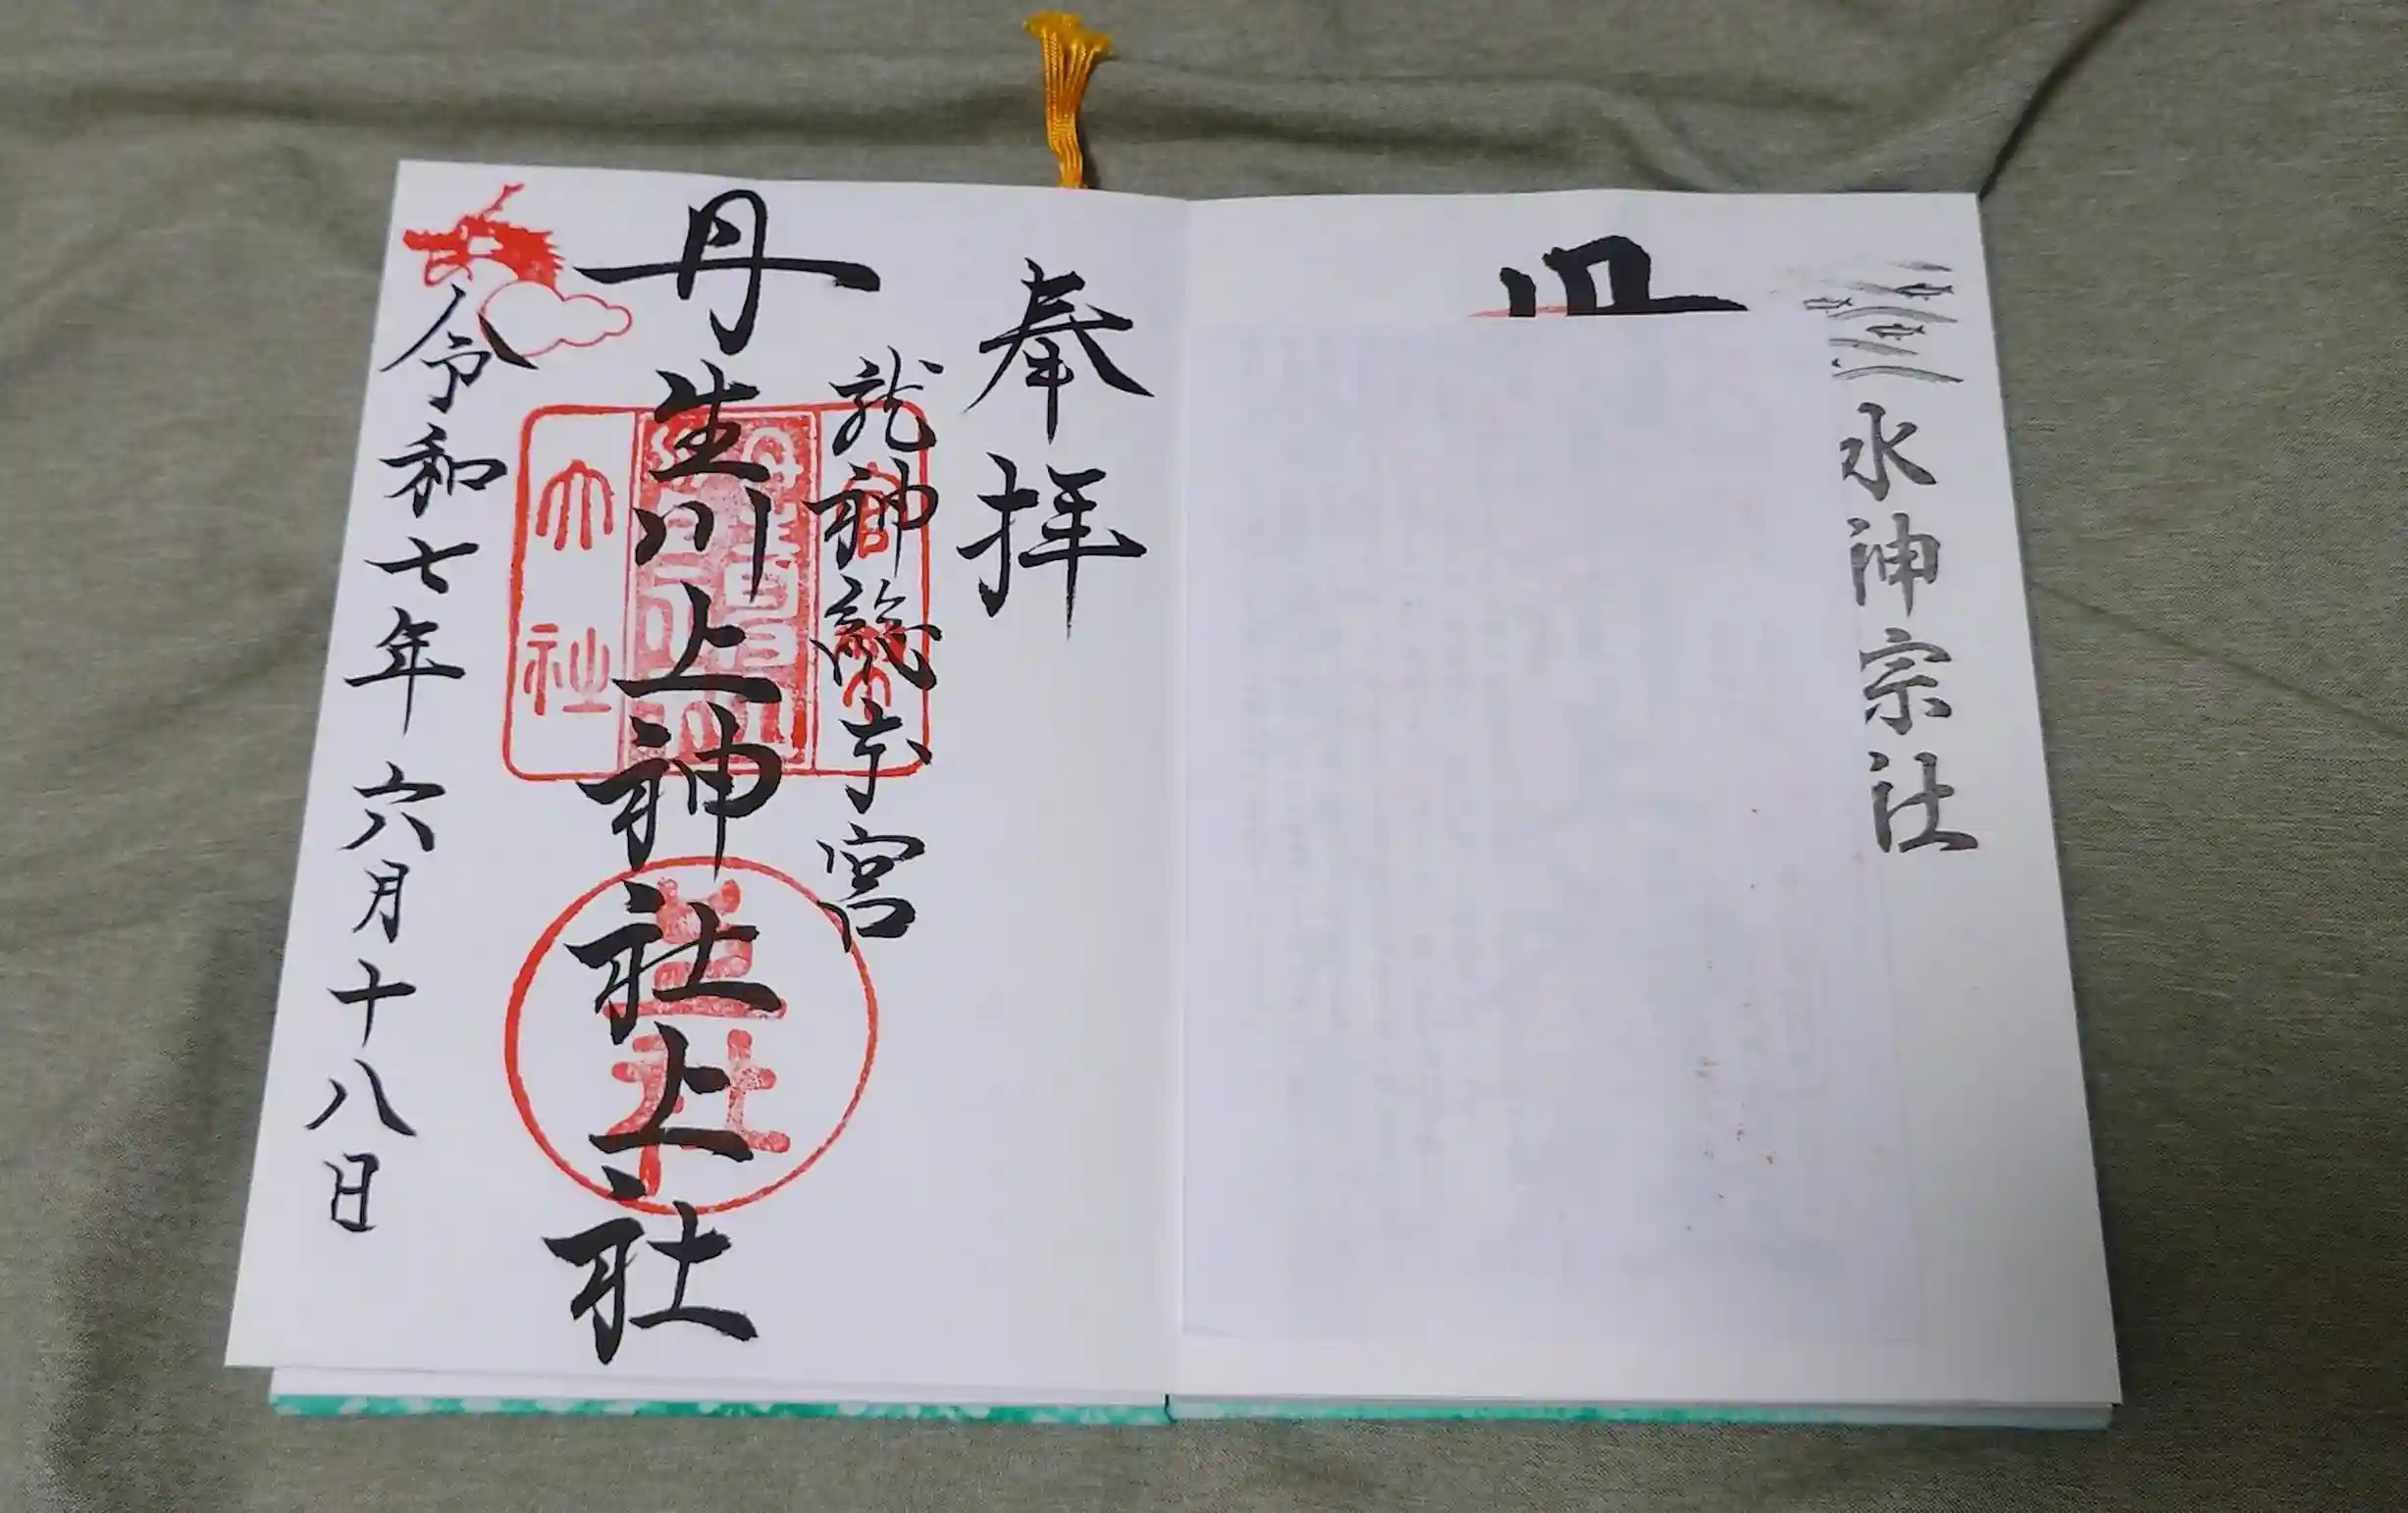 水神宗社
奉拝
龍神総本宮
丹生川上神社上社
令和七年六月十八日
大社